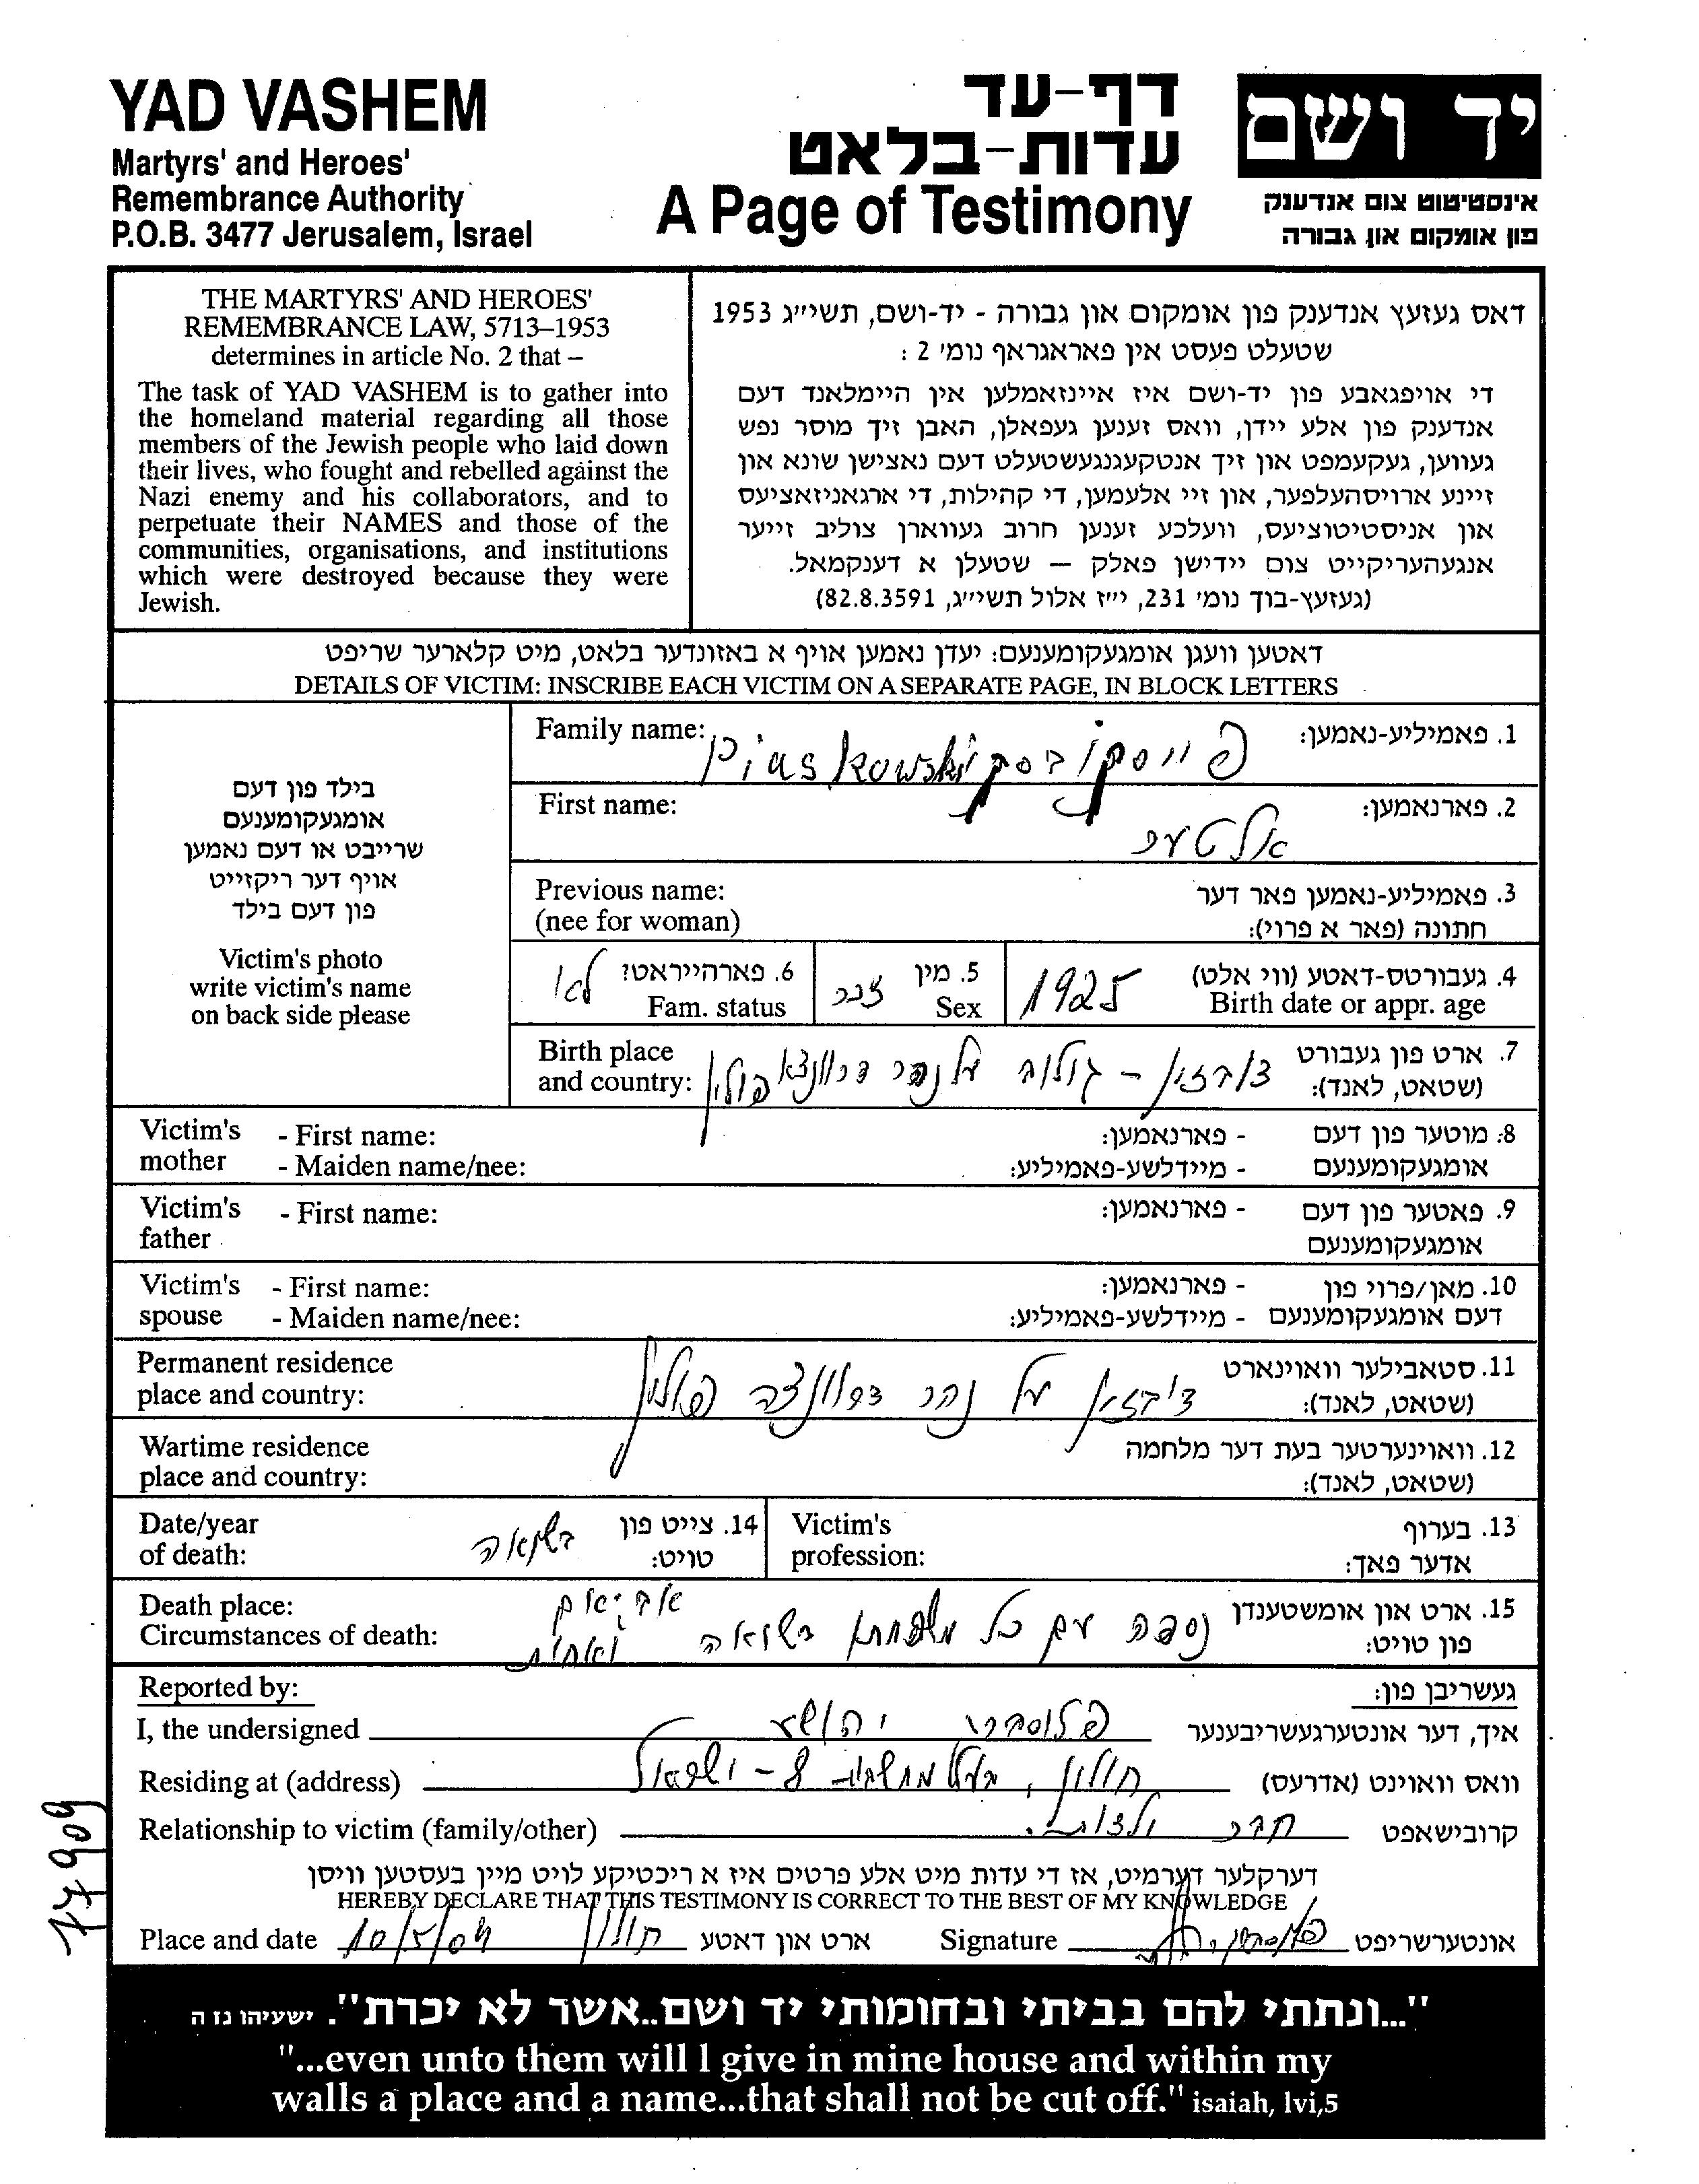 YAD VASHEM
Martyrs' and Heroes'
Remembrance Authority
P.O.B. 3477 Jerusalem, Israel
דף-עד
עדות-בלאט
A Page of Testimony
יד ושם
אינסטיטוט צום אנדענק
פון אומקום און גבורה
THE MARTYRS' AND HEROES'
REMEMBRANCE LAW, 5713–1953
determines in article No. 2 that –
The task of YAD VASHEM is to gather into
the homeland material regarding all those
members of the Jewish people who laid down
their lives, who fought and rebelled against the
Nazi enemy and his collaborators, and to
perpetuate their NAMES and those of the
communities, organisations, and institutions
which were destroyed because they were
Jewish.
דאס געזעץ אנדענק פון אומקום און גבורה - יד-ושם, תשי״ג 1953
שטעלט פעסט אין פאראגראף נומ׳ 2 :
די אויפגאבע פון יד-ושם איז איינזאמלען אין היימלאנד דעם
אנדענק פון אלע יידן, וואס זענען געפאלן, האבן זיך מוסר נפש
געווען, געקעמפט און זיך אנטקעגנגעשטעלט דעם נאצישן שונא און
זיינע ארויסהעלפער, און זיי אלעמען, די קהילות, די ארגאניזאציעס
און אניסטיטוציעס, וועלכע זענען חרוב געווארן צוליב זייער
אנגעהעריקייט צום יידישן פאלק – שטעלן א דענקמאל.
(געזעץ-בוך נומ׳ 231, י״ז אלול תשי״ג, 82.8.3591)
דאטען וועגן אומגעקומענעם: יעדן נאמען אויף א באזונדער בלאט, מיט קלארער שריפט
DETAILS OF VICTIM: INSCRIBE EACH VICTIM ON A SEPARATE PAGE, IN BLOCK LETTERS
בילד פון דעם
אומגעקומענעם
שרייבט או דעם נאמען
אויף דער ריקזייט
פון דעם בילד
Victim's photo
write victim's name
on back side please
Family name: Piaskowski פיוסקובסקי 1. פאמיליע-נאמען:
First name: אלטער 2. פארנאמען:
Previous name: 3. פאמיליע-נאמען פאר דער
(nee for woman) חתונה (פאר א פרוי):
לא 6. פארהייראט? זכר 5. מין 1925 4. געבורטס-דאטע (ווי אלט)
Fam. status Sex Birth date or appr. age
Birth place 7. ארט פון געבורט
and country: דוברזין - גולוב על נהר דרוונצא פולין (שטאט, לאנד):
Victim's - First name: - פארנאמען: 8. מוטער פון דעם
mother - Maiden name/nee: - מיידלשע-פאמיליע: אומגעקומענעם
Victim's - First name: - פארנאמען: 9. פאטער פון דעם
father אומגעקומענעם
Victim's - First name: - פארנאמען: 10. מאן/פרוי פון
spouse - Maiden name/nee: - מיידלשע-פאמיליע: דעם אומגעקומענעם
Permanent residence 11. סטאבילער וואוינארט
place and country: דוברזין על נהר דרוונצה פולין (שטאט, לאנד):
Wartime residence 12. וואוינערטער בעת דער מלחמה
place and country: (שטאט, לאנד):
Date/year בשואה 14. צייט פון Victim's 13. בערוף
of death: טויט: profession: אדער פאך:
Death place: 15. ארט און אומשטענדן
Circumstances of death: נספה עם כל משפחתו בשואה ואחיות פון טויט:
Reported by: געשריבן פון:
I, the undersigned יהושע איך, דער אונטערגעשריבענער
Residing at (address) חולון, 8 - ישראל וואס וואוינט (אדרעס)
Relationship to victim (family/other) חבר ילדות. קרובישאפט
דערקלער דערמיט, אז די עדות מיט אלע פרטים איז א ריכטיקע לויט מיין בעסטען וויסן
HEREBY DECLARE THAT THIS TESTIMONY IS CORRECT TO THE BEST OF MY KNOWLEDGE
Place and date 10/5/04 חולון ארט און דאטע Signature אונטערשריפט
"...ונתתי להם בביתי ובחומותי יד ושם..אשר לא יכרת". ישעיהו נז ה
"...even unto them will I give in mine house and within my
walls a place and a name...that shall not be cut off." isaiah, lvi,5